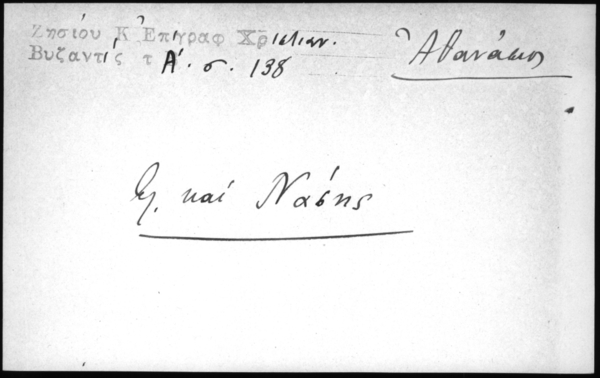 Ζησίου Κ Ἐπίγραφ Χριστιαν.
Βυζαντίς τ Α΄. σ. 138
Ἀθανάσιος
καὶ Νάσης